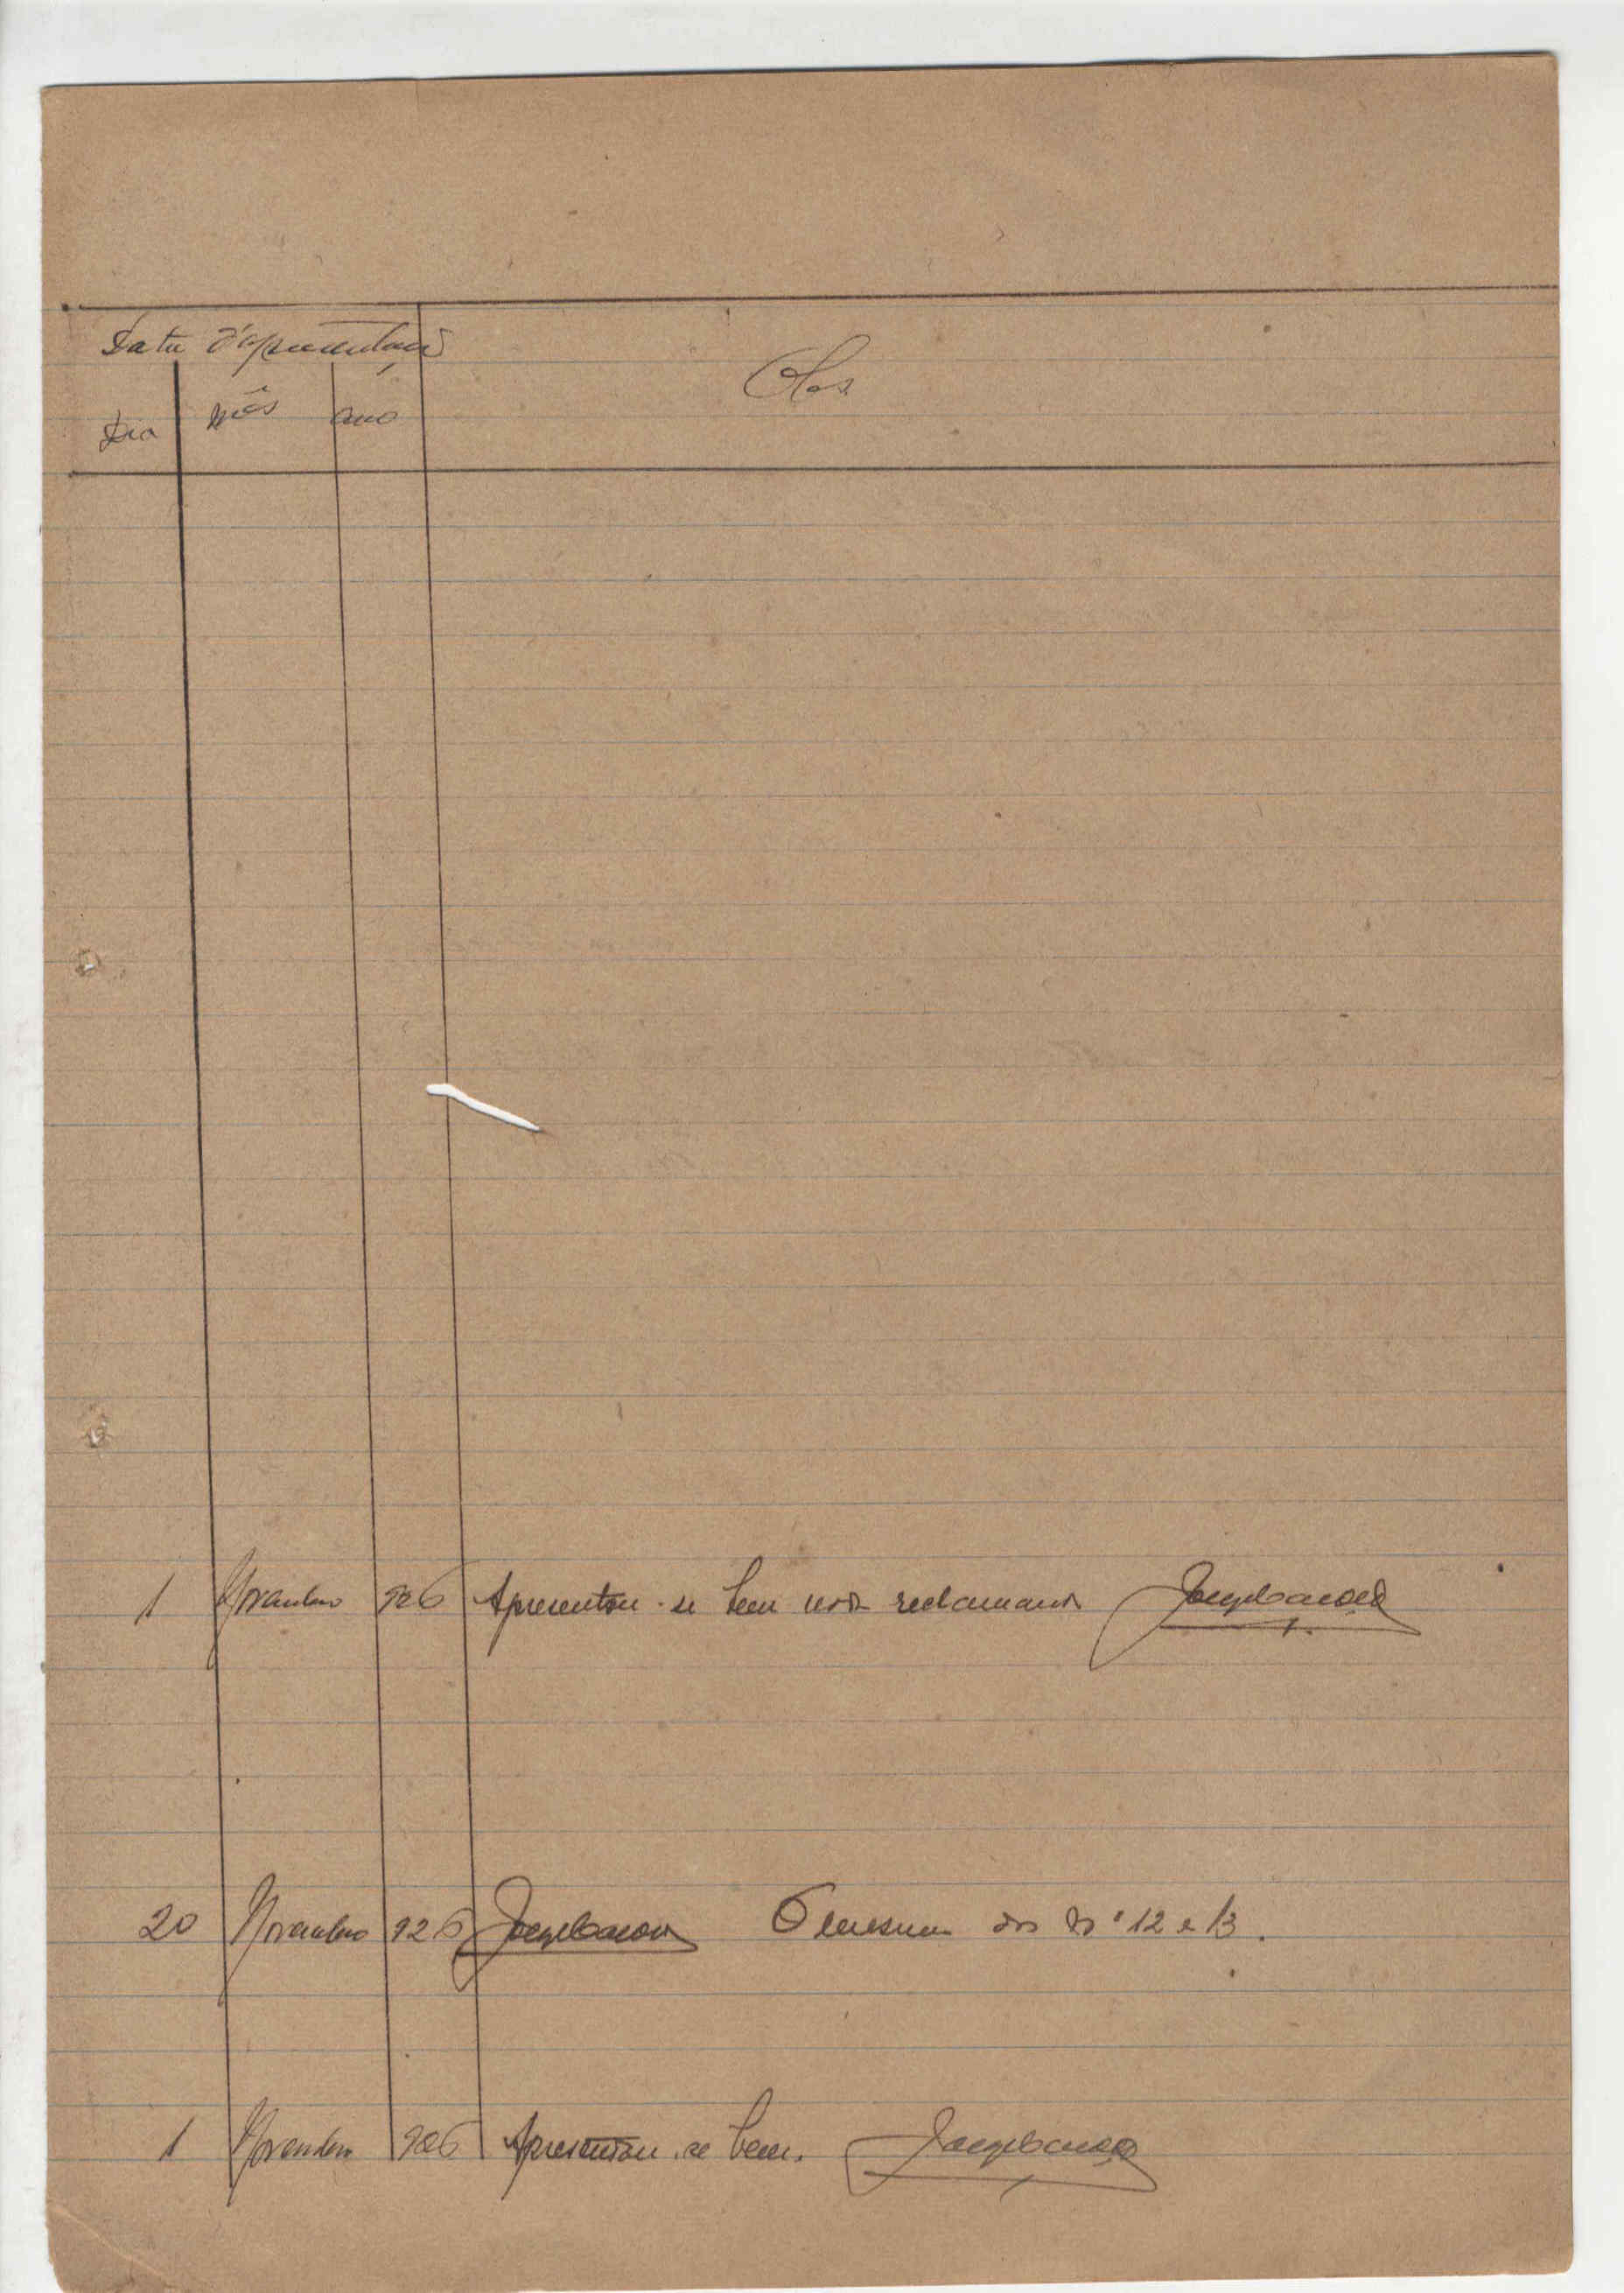 Data d'apresentação
Dia mês ano
Obs
1 Novembro 926 Apresentou-se bem reclamando
20 Novembro 926 O mesmo dos Nº 12 e 13.
1 Novembro 926 Apresentou-se bem.